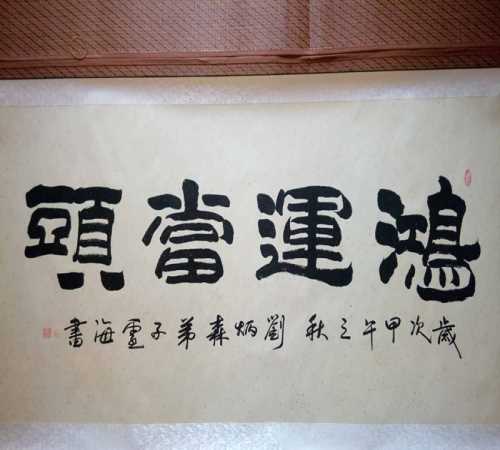 鴻運當頭
歲次甲午之秋劉炳森弟子盧海書